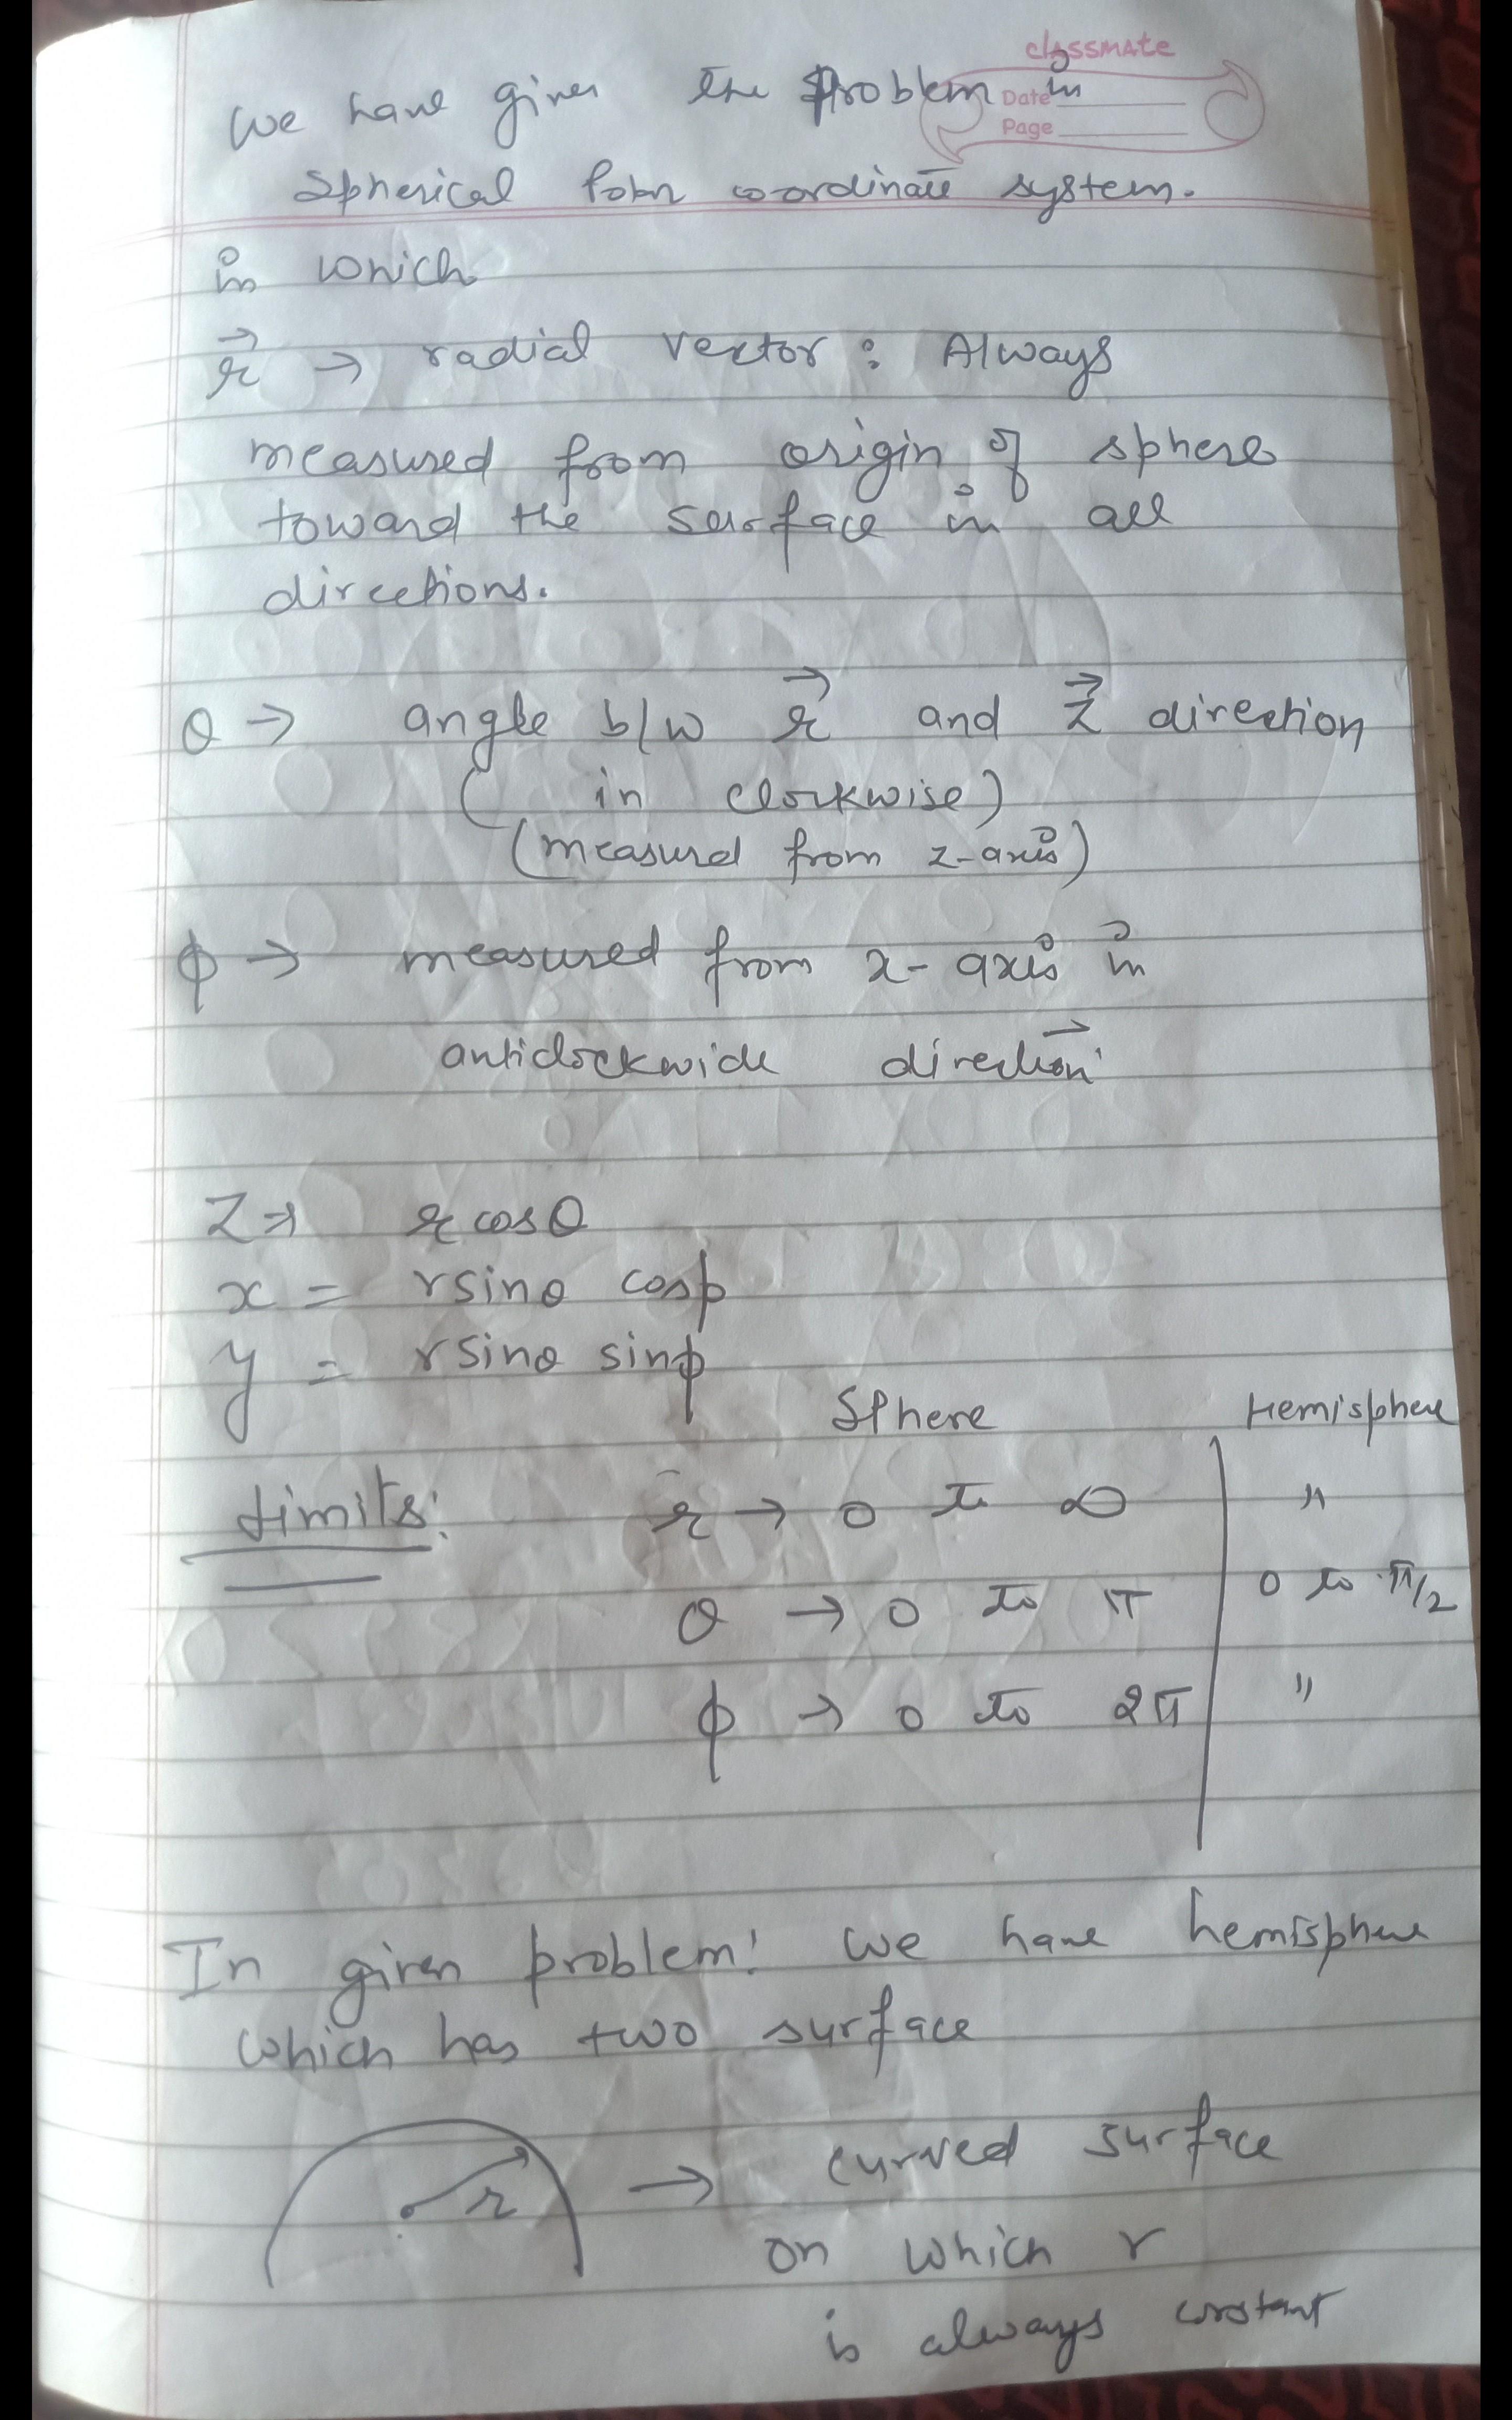 classmate
Date
Page
We have given the Problem in
Spherical Polar coordinate system.
in which
r⃗ → radial vector : Always
measured from origin of sphere
toward the surface in all
directions.
θ → angle b/w r⃗ and z⃗ direction
(in clockwise)
(measurd from z-axis)
ϕ → measured from x-axis in
anticlockwide direction
Z → r cosθ
x = r sinθ cosϕ
y = r sinθ sinϕ
Sphere Hemisphere
Limits:
r → 0 to ∞ "
θ → 0 to π 0 to π/2
ϕ → 0 to 2π "
In given problem! we have hemisphere
which has two surface
r → curved surface
on which r
is always constant